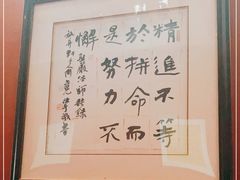 精進不等
於拼命而
是努力不
懈 聖嚴法師語錄